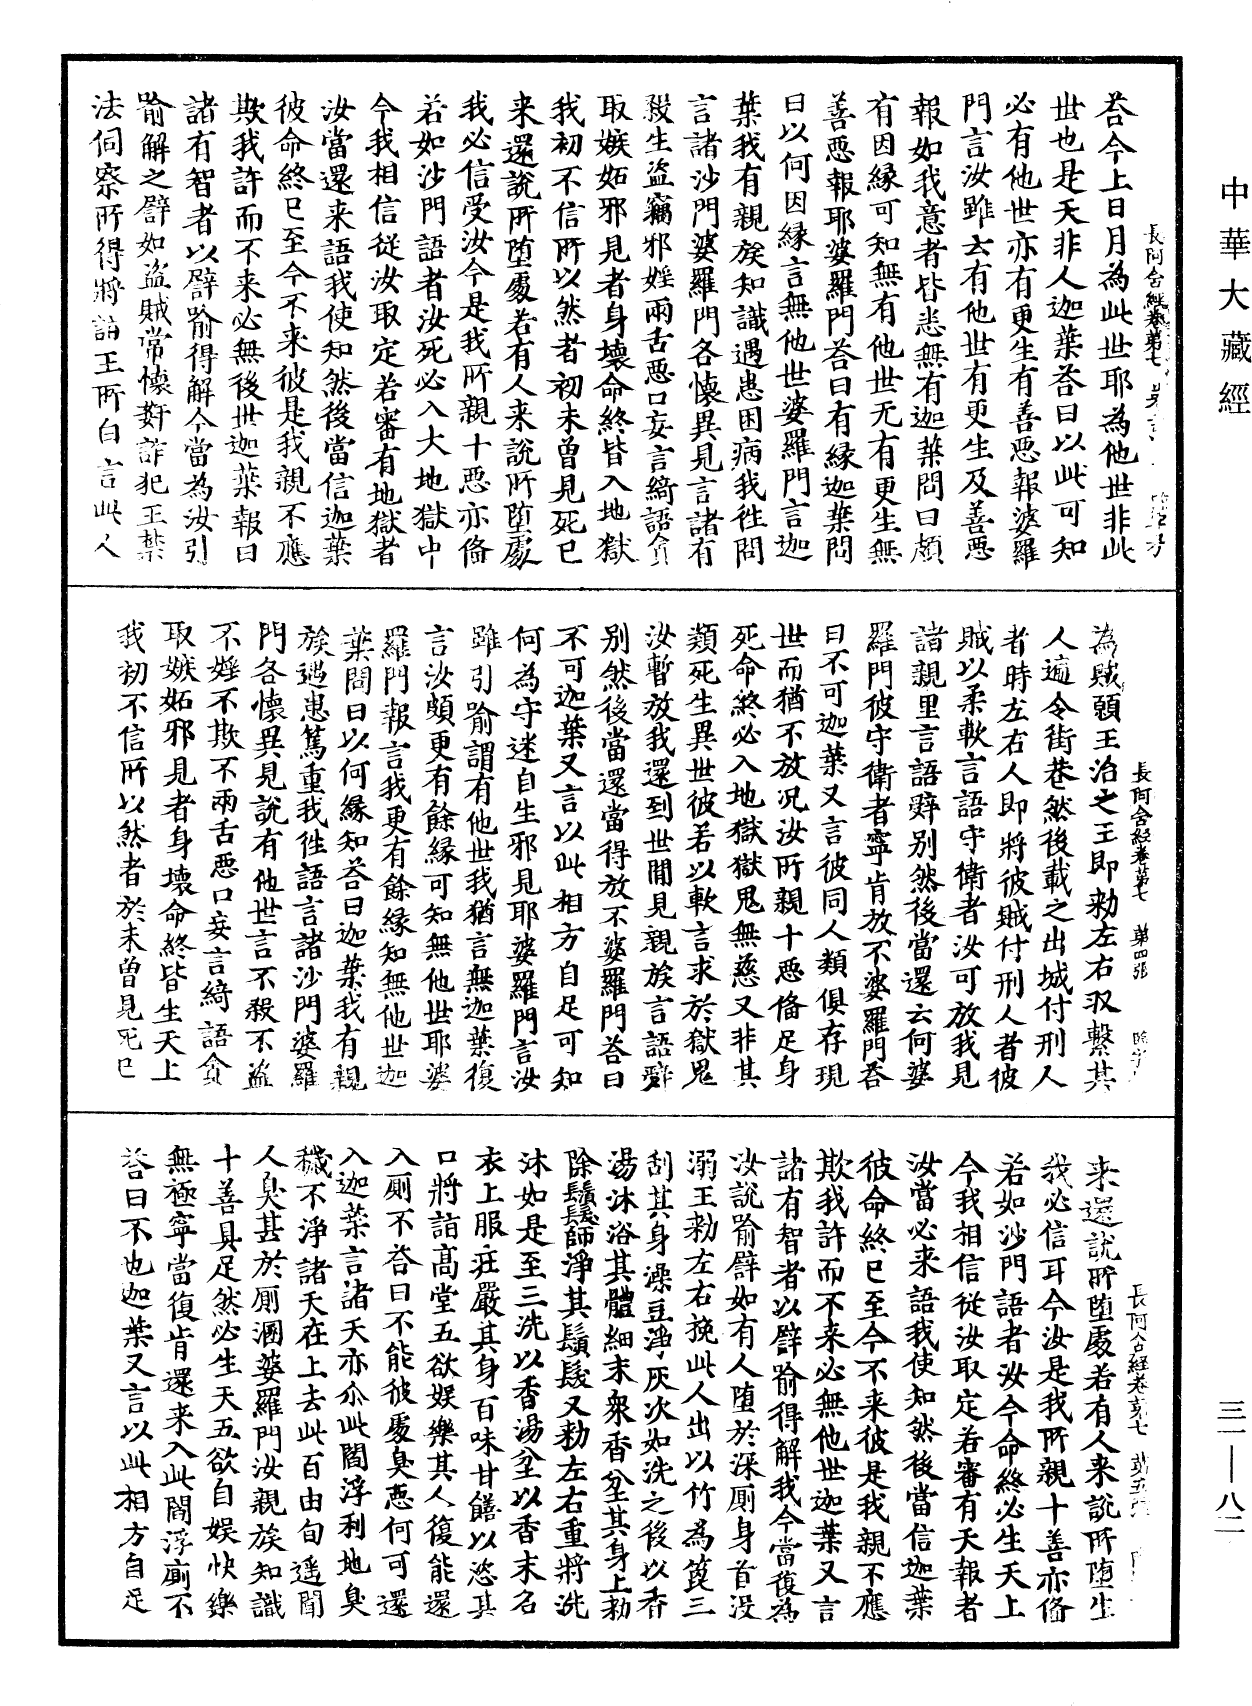 中華大藏經
長阿含經卷第七
荅今上日月為此世耶為他世非此
世也是天非人迦葉荅曰以此可知
必有他世亦有更生有善惡報婆羅
門言汝雖云有他世有更生及善惡
報如我意者皆悉無有迦葉問曰頗
有因縁可知無有他世无有更生無
善惡報耶婆羅門荅曰有縁迦葉問
曰以何因縁言無他世婆羅門言迦
葉我有親族知識遇患困病我往問
言諸沙門婆羅門各懷異見言諸有
殺生盜竊邪婬兩舌惡口妄言綺語貪
取嫉妬邪見者身壞命終皆入地獄
我初不信所以然者初未曽見死已
来還說所墮處若有人来說所墮處
我必信受汝今是我所親十惡亦備
若如沙門語者汝死必入大地獄中
今我相信從汝取定若審有地獄者
汝當還来語我使知然後當信迦葉
彼命終已至今不来彼是我親不應
欺我許而不来必無後世迦葉報曰
諸有智者以譬喻得解今當為汝引
喻解之譬如盜賊常懷姧詐犯王禁
法伺察所得將詣王所白言此人
長阿含經卷第七 第四張
為賊願王治之王即勑左右収繫其
人遍令街巷然後載之出城付刑人
者時左右人即將彼賊付刑人者彼
賊以柔軟言語守衛者汝可放我見
諸親里言語辭别然後當還云何婆
羅門彼守衛者寧肯放不婆羅門荅
曰不可迦葉又言彼同人類俱存現
世而猶不放况汝所親十惡備足身
死命終必入地獄獄鬼無慈又非其
類死生異世彼若以軟言求於獄鬼
汝暫放我還到世間見親族言語辭
别然後當還當得放不婆羅門荅曰
不可迦葉又言以此相方自足可知
何為守迷自生邪見耶婆羅門言汝
雖引喻謂有他世我猶言無迦葉復
言汝頗更有餘縁可知無他世耶婆
羅門報言我更有餘縁知無他世迦
葉問曰以何縁知荅曰迦葉我有親
族遇患篤重我往語言諸沙門婆羅
門各懷異見說有他世言不殺不盜
不婬不欺不兩舌惡口妄言綺語貪
取嫉妬邪見者身壞命終皆生天上
我初不信所以然者初未曽見死已
長阿含經卷第七 第五張
来還說所墮處若有人来說所墮生
我必信耳今汝是我所親十善亦備
若如沙門語者汝今命終必生天上
今我相信從汝取定若審有天報者
汝當必来語我使知然後當信迦葉
彼命終已至今不来彼是我親不應
欺我許而不来必無他世迦葉又言
諸有智者以譬喻得解我今當復為
汝說喻譬如有人墮於深廁身首没
溺王勑左右挽此人出以竹為箆三
刮其身澡豆淨灰次如洗之後以香
湯沐浴其體細末衆香坌其身上勑
除鬚髮師淨其鬚髮又勑左右重將洗
沐如是至三洗以香湯坌以香末名
衣上服莊嚴其身百味甘饍以恣其
口將詣髙堂五欲娱樂其人復能還
入廁不荅曰不能彼處臭惡何可還
入迦葉言諸天亦尒此閻浮利地臭
穢不淨諸天在上去此百由旬遥聞
人臭甚於廁溷婆羅門汝親族知識
十善具足然必生天五欲自娱快樂
無極寧當復肯還来入此閻浮廁不
荅曰不也迦葉又言以此相方自足
三一—八二